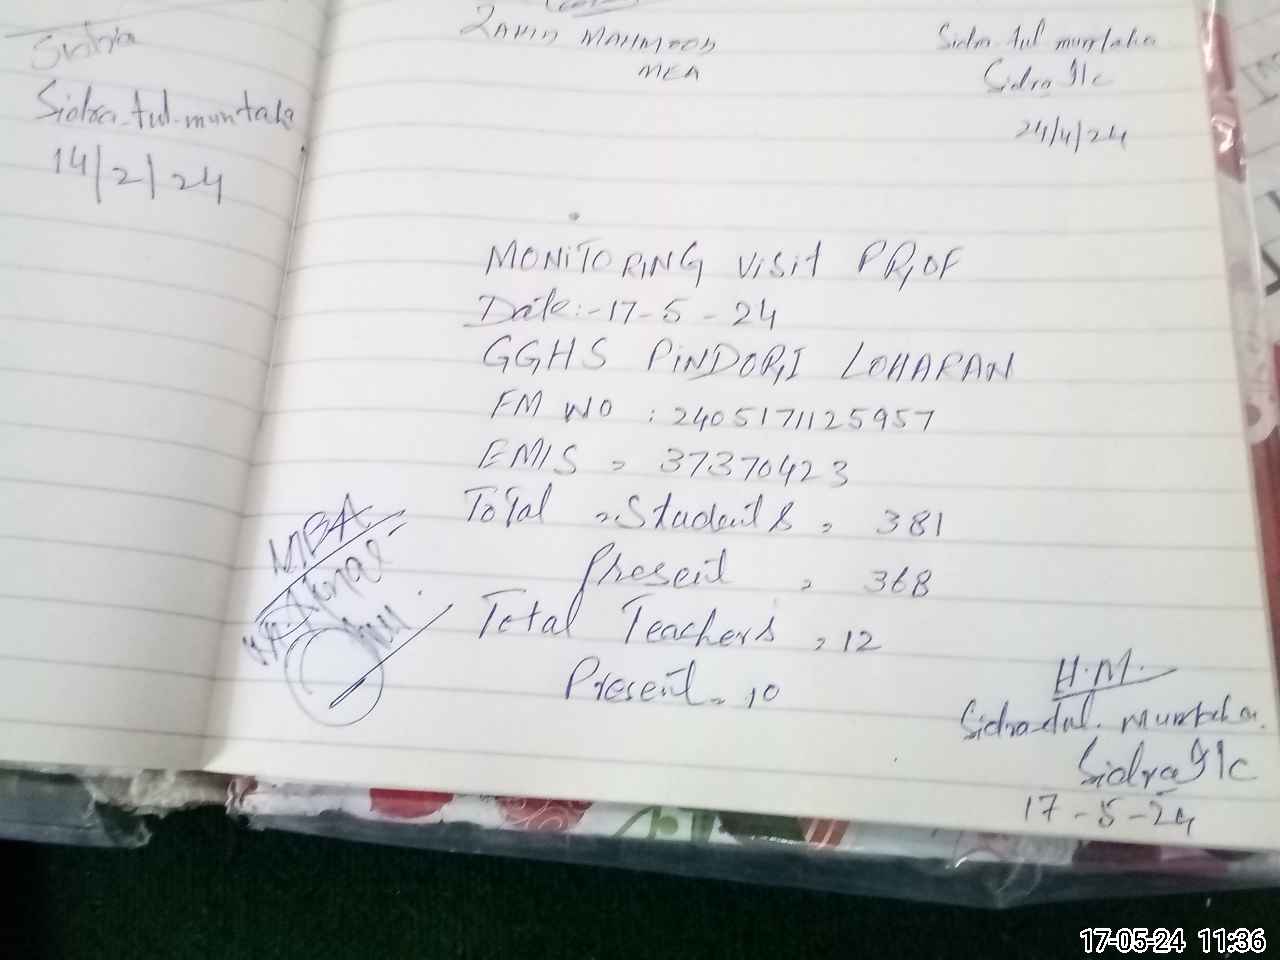 Sidra
Sidra-tul-muntaha
14/2/24
ZAHID MAHMOOD
MEA
Sidra tul muntaha
Sidra I/c
24/4/24
MONITORING VISIT PROF
Date:-17-5-24
GGHS PINDORI LOHARAN
FM NO : 2405171125957
EMIS = 37370423
Total = Students = 381
Present = 368
Total Teachers = 12
Present = 10
H.M.
Sidra-tul. Muntaha.
Sidra I/c
17-5-24
17-05-24 11:36